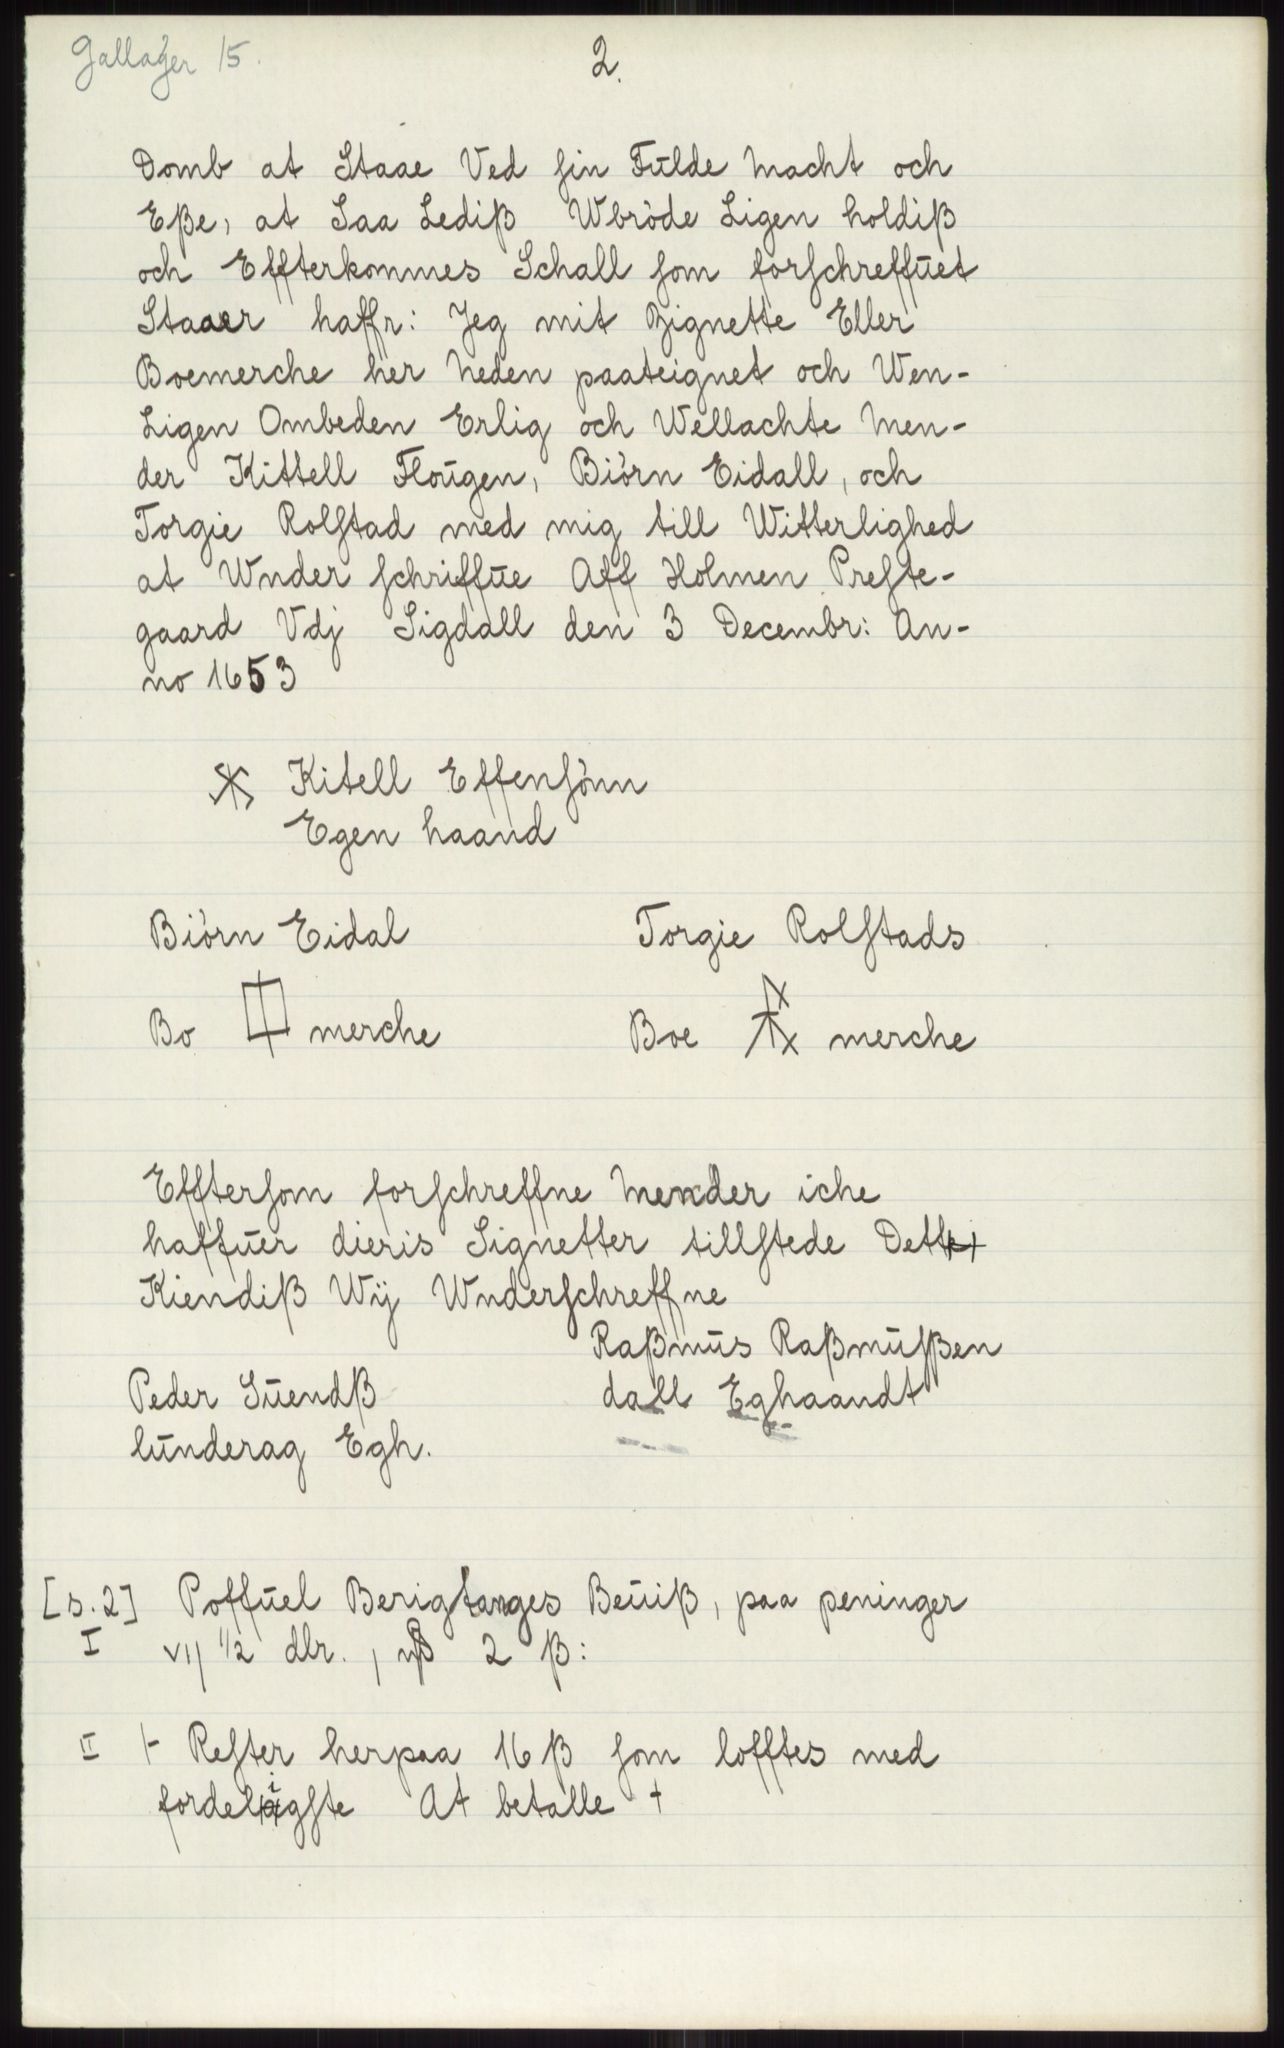 Gallager 15.
2.
Domb at Staae Ved sin Fulde Macht och
Eße, at Saa Lediß Wbröde Ligen holdiß
och Effterkommes Schall som forschreffuet
Staaer haffr: Jeg mit Zignette Eller
Boemerche her Neden paateignet och Wen-
Ligen Ombeden Erlig och Wellachte Men-
der Kittell Flougen, Biörn Eidall, och
Torgie Rolstad med mig till Witterlighed
at Wnder schriffue Aff Holmen Preste-
gaard Vdj Sigdall den 3 Decembr: An-
no 1653
Kitell Effensönn
Egen haand
Biörn Eidal Torgie Rolstads
Bo merche Boe merche
Efftersom forschreffne Mender iche
haffuer dieris Signetter tillstede Dett
Kiendiß Wij Wnderschreffne
Raßmus Raßmusßen
Peder Suendß dall Eghaandt
lunderag Egh.
[s.2] Poffuel Berigtanges Beuiß, paa peninger
I vij 1/2 dlr., 2 ß:
II Rester herpaa 16 ß som lofftes med
fordeligste At betalle +